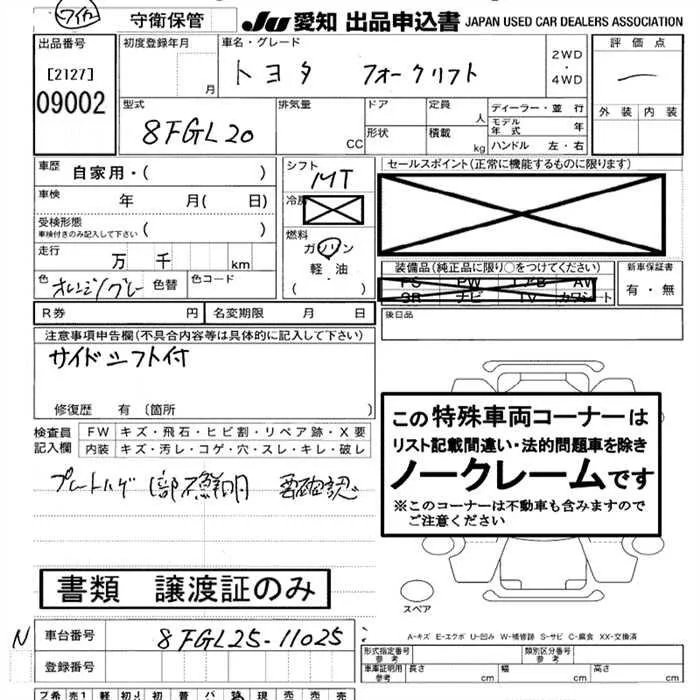 ワイカ 守衛保管 JU 愛知 出品申込書 JAPAN USED CAR DEALERS ASSOCIATION
出品番号
[2127]
09002
初度登録年月
月
車名・グレード
トヨタ フォークリフト
2WD
・
4WD
評価点
外装 内装
型式
8FGL20
排気量
CC
ドア
形状
定員
人
積載
kg
ディーラー・並行
モデル年式 年
ハンドル 左・右
車歴 自家用・( )
車検 年 月( 日)
受検形態
車検付きのみ記入して下さい ( )
走行 万 千 km
色 オレンジ/グレー 色替 色コード
シフト
MT
冷房
燃料
ガソリン
軽油
( )
セールスポイント(正常に機能するものに限ります)
装備品(純正品に限り○をつけてください)
PS PW エアB AW
SR ナビ TV カワシート
新車保証書
有・無
R券 円 名変期限 月 日
後日品
注意事項申告欄(不具合内容等は具体的に記入して下さい)
サイドシフト付
修復歴 有 〔箇所 〕
検査員記入欄
FW キズ・飛石・ヒビ割・リペア跡・X要
内装 キズ・汚レ・コゲ・穴・スレ・キレ・破レ
プレートハゲ 1部不鮮明 要確認
この特殊車両コーナーは
リスト記載間違い・法的問題車を除き
ノークレームです
※このコーナーは不動車も含みますので
ご注意ください
書類 譲渡証のみ
スペア
N 車台番号 8FGL25-11025
登録番号
A-キズ E-エクボ U-凹み W-補修跡 S-サビ C-腐食 XX-交換済
形式指定番号
参考
類別区分番号
参考
車庫証明用
参考
長さ 幅 高さ